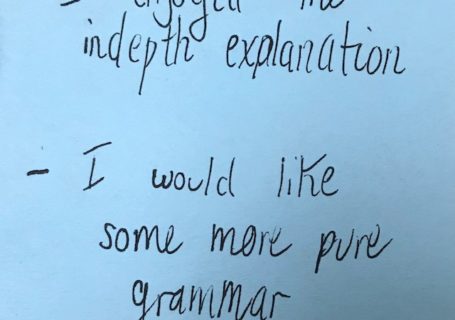 I enjoyed the
indepth explanation
- I would like
some more pure
grammar